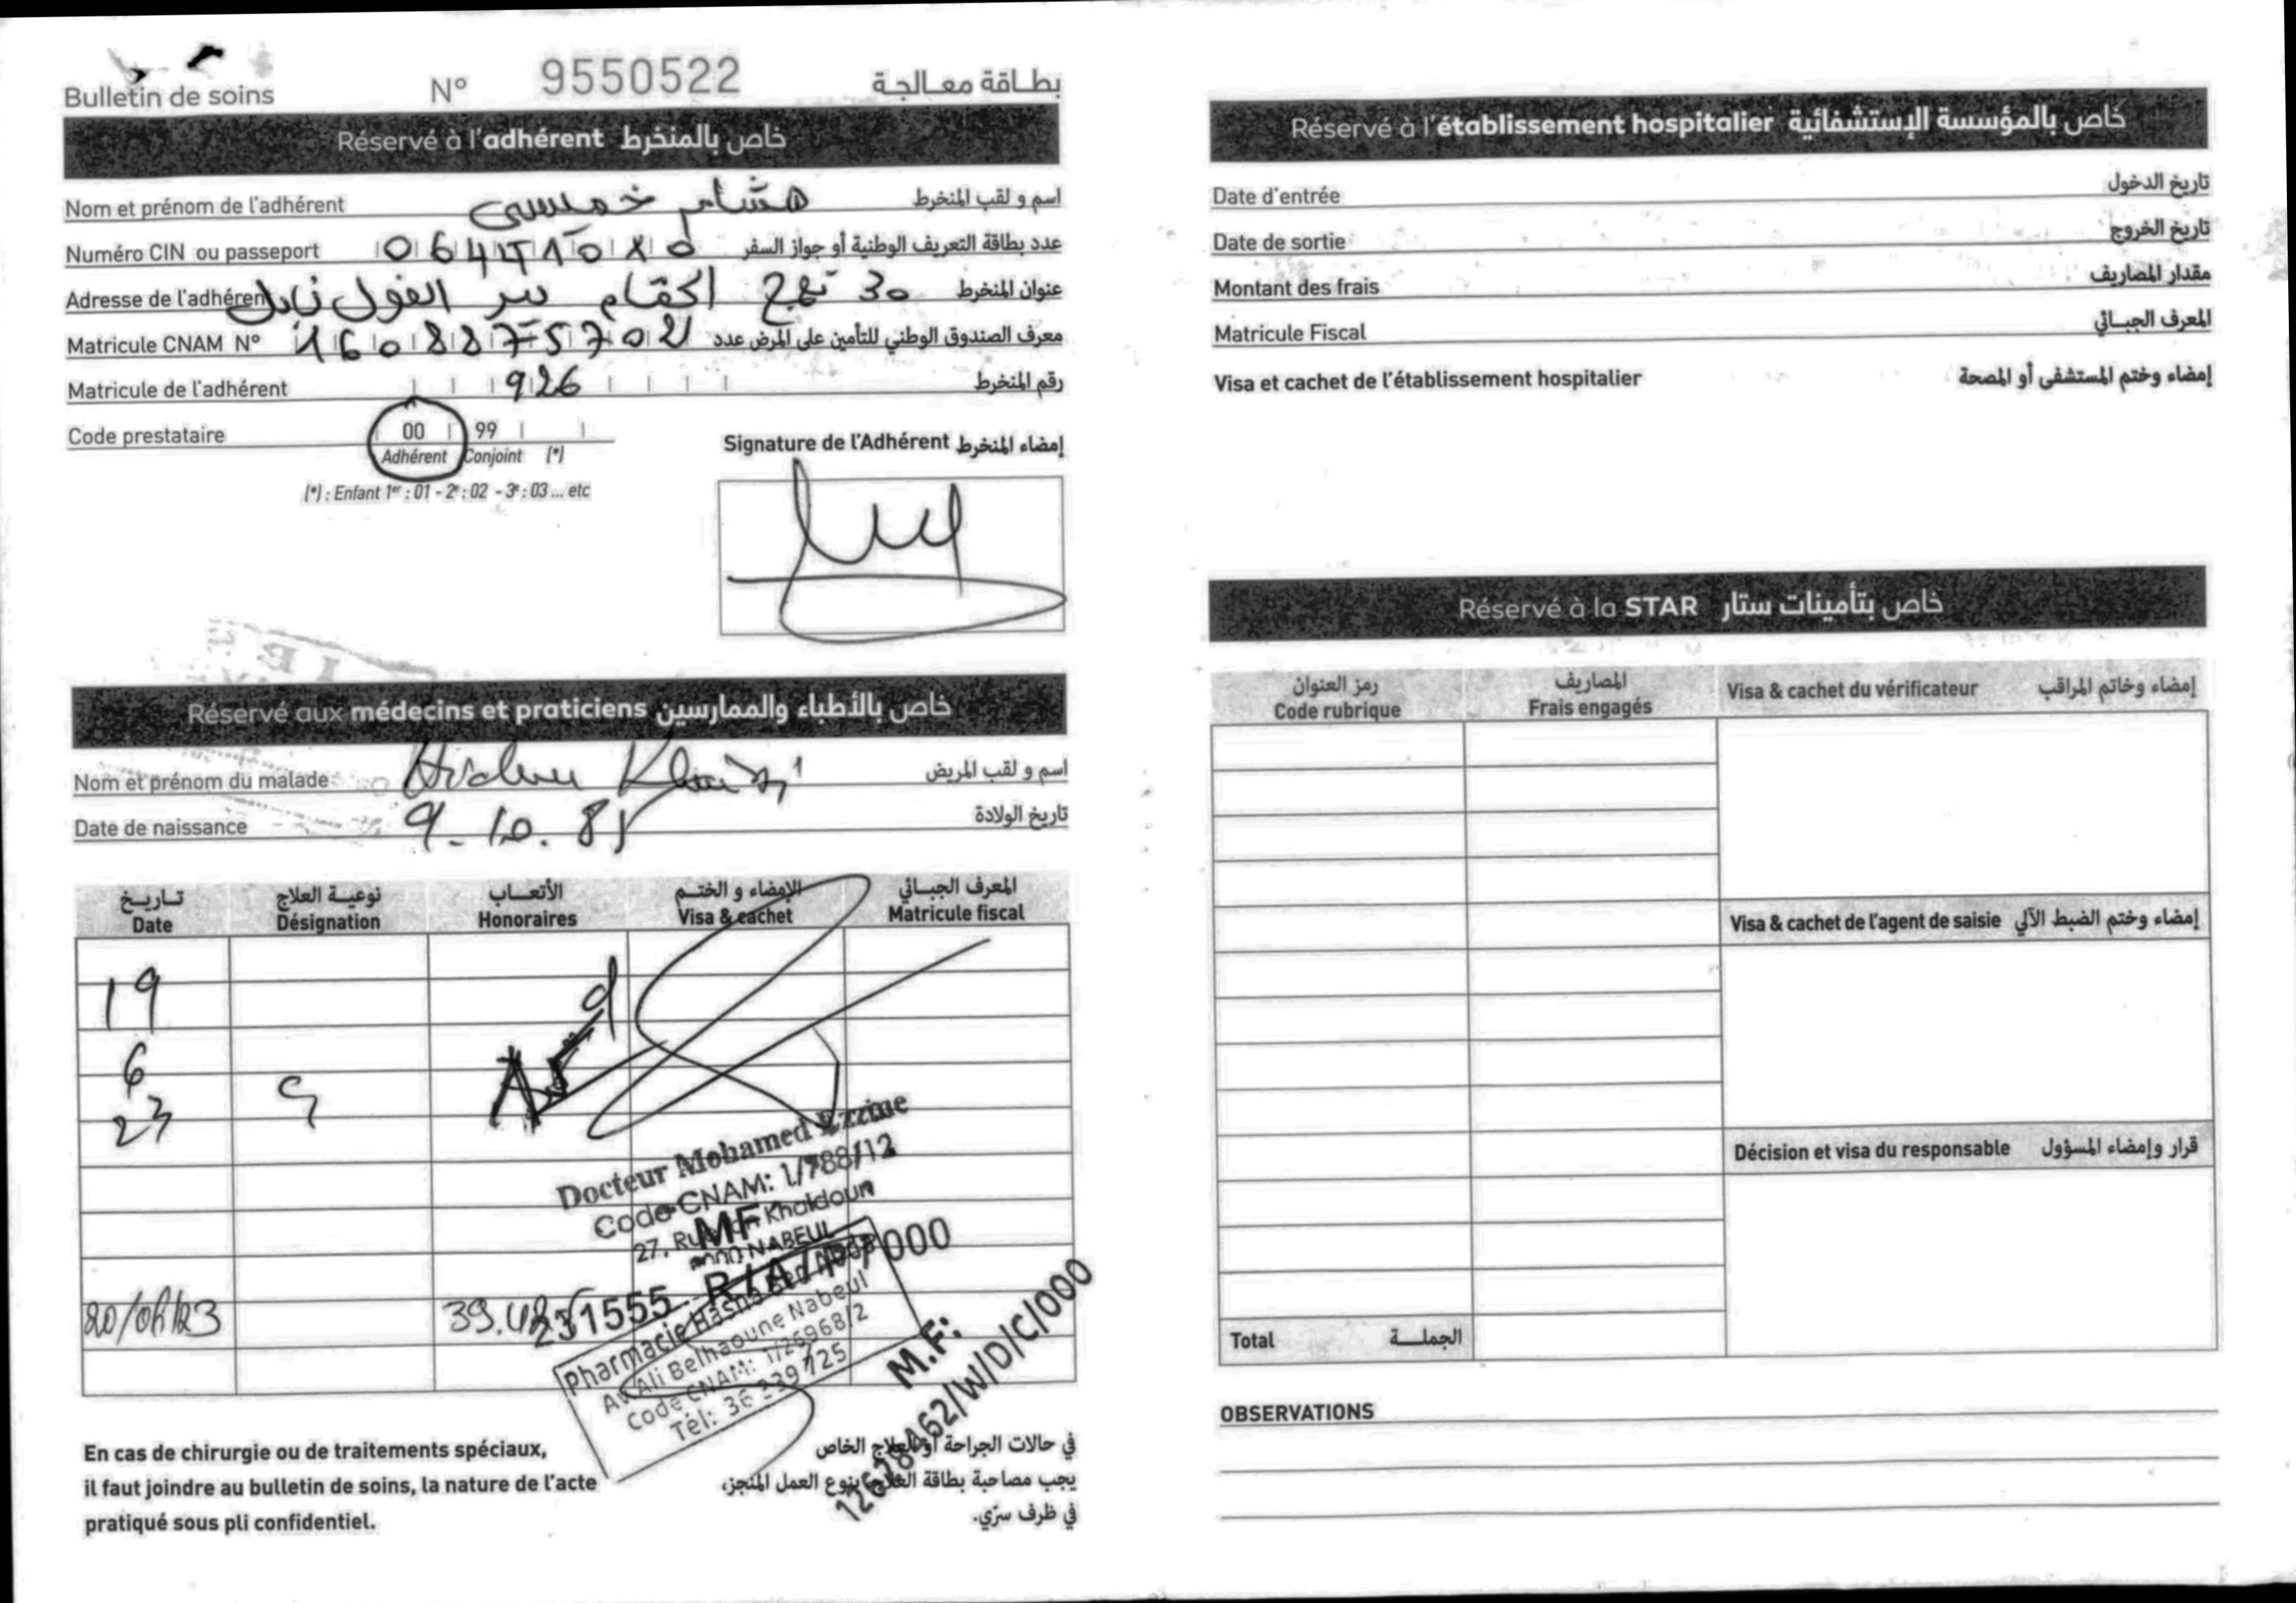 Bulletin de soins N° 9550522 بطاقة معالجة
Réservé à l'adhérent خاص بالمنخرط
Nom et prénom de l'adhérent هشام خميسي اسم و لقب المنخرط
Numéro CIN ou passeport عدد بطاقة التعريف الوطنية أو جواز السفر
Adresse de l'adhérent 30 نهج بئر الغول نابل عنوان المنخرط
Matricule CNAM N° معرف الصندوق الوطني للتأمين على المرض عدد
Matricule de l'adhérent 926 رقم المنخرط
Code prestataire 00 99
Adhérent Conjoint (*)
(*) : Enfant 1er : 01 - 2e : 02 - 3e : 03 ... etc
Signature de l'Adhérent إمضاء المنخرط
Réservé aux médecins et praticiens خاص بالأطباء والممارسين
Nom et prénom du malade اسم و لقب المريض
Date de naissance 9.10.81 تاريخ الولادة
تاريخ نوعية العلاج الأتعاب الإمضاء و الختم المعرف الجبائي
Date Désignation Honoraires Visa & cachet Matricule fiscal
19
6
23
Docteur Mohamed Ezzine
Code CNAM: 1/788/12
27, Rue Ibn Khaldoun
8000 NABEUL
MF
20/06/23
Pharmacie Hasna Ben
Av Ali Belhaoune Nabeul
Code CNAM: 1/26968/2
Tél: 36 239 725
M.F:
12678462/W/D/C/000
En cas de chirurgie ou de traitements spéciaux,
il faut joindre au bulletin de soins, la nature de l'acte
pratiqué sous pli confidentiel.
في حالات الجراحة أو العلاج الخاص
يجب مصاحبة بطاقة العلاج بنوع العمل المنجز،
في ظرف سرّي.
Réservé à l'établissement hospitalier خاص بالمؤسسة الإستشفائية
Date d'entrée تاريخ الدخول
Date de sortie تاريخ الخروج
Montant des frais مقدار المصاريف
Matricule Fiscal المعرف الجبائي
Visa et cachet de l'établissement hospitalier إمضاء وختم المستشفى أو المصحة
Réservé à la STAR خاص بتأمينات ستار
رمز العنوان المصاريف
Code rubrique Frais engagés Visa & cachet du vérificateur إمضاء وخاتم المراقب
Visa & cachet de l'agent de saisie إمضاء وختم الضبط الآلي
Décision et visa du responsable قرار وإمضاء المسؤول
Total الجملة
OBSERVATIONS